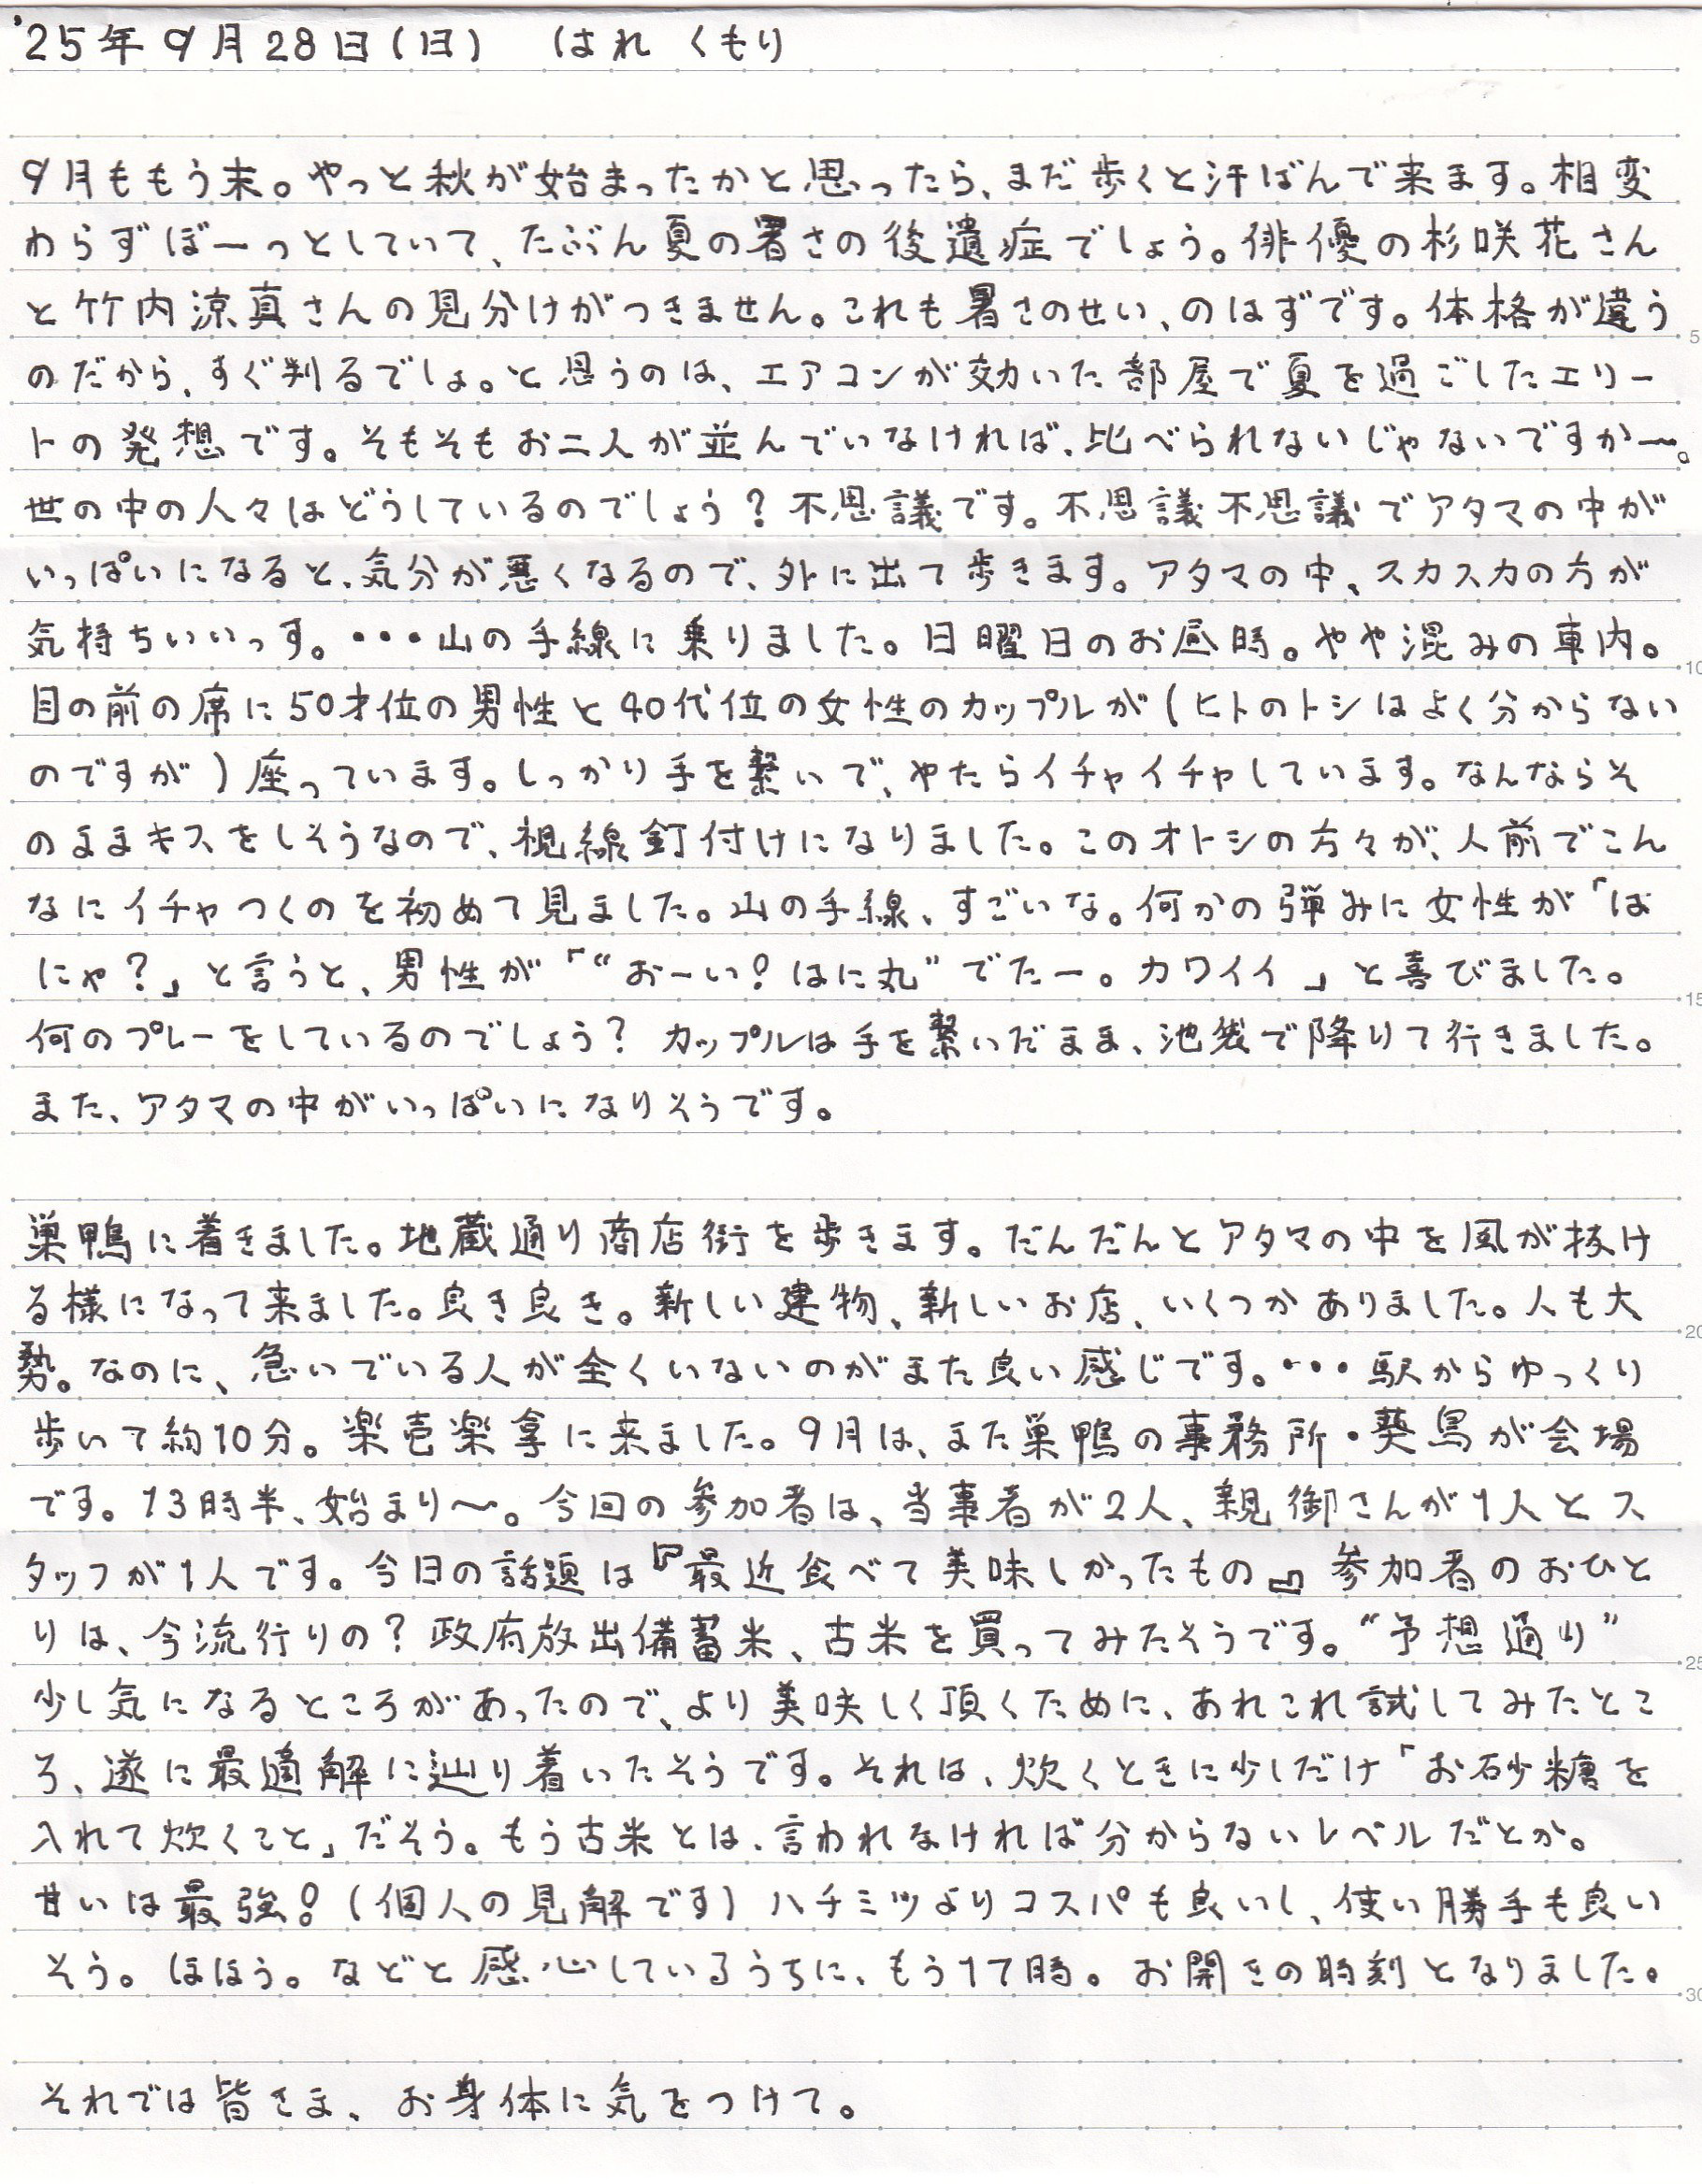 '25年9月28日(日)　はれ くもり
9月ももう末。やっと秋が始まったかと思ったら、まだ歩くと汗ばんで来ます。相変
わらずぼーっとしていて、たぶん夏の暑さの後遺症でしょう。俳優の杉咲花さん
と竹内涼真さんの見分けがつきません。これも暑さのせい、のはずです。体格が違う
のだから、すぐ判るでしょ。と思うのは、エアコンが効いた部屋で夏を過ごしたエリー
トの発想です。そもそもお二人が並んでいなければ、比べられないじゃないですか〜。
世の中の人々はどうしているのでしょう？不思議です。不思議不思議でアタマの中が
いっぱいになると、気分が悪くなるので、外に出て歩きます。アタマの中、スカスカの方が
気持ちいいっす。・・・山の手線に乗りました。日曜日のお昼時。やや混みの車内。
目の前の席に50才位の男性と40代位の女性のカップルが(ヒトのトシはよく分からない
のですが)座っています。しっかり手を繋いで、やたらイチャイチャしています。なんならそ
のままキスをしそうなので、視線釘付けになりました。このオトシの方々が、人前でこん
なにイチャつくのを初めて見ました。山の手線、すごいな。何かの弾みに女性が「は
にゃ？」と言うと、男性が「“おーい！はに丸”でたー。カワイイ」と喜びました。
何のプレーをしているのでしょう？ カップルは手を繋いだまま、池袋で降りて行きました。
また、アタマの中がいっぱいになりそうです。
巣鴨に着きました。地蔵通り商店街を歩きます。だんだんとアタマの中を風が抜け
る様になって来ました。良き良き。新しい建物、新しいお店、いくつかありました。人も大
勢。なのに、急いでいる人が全くいないのがまた良い感じです。・・・駅からゆっくり
歩いて約10分。楽壱楽拿に来ました。9月は、また巣鴨の事務所・葵鳥が会場
です。13時半、始まり〜。今回の参加者は、当事者が2人、親御さんが1人とス
タッフが1人です。今日の話題は『最近食べて美味しかったもの』参加者のおひと
りは、今流行りの？政府放出備蓄米、古米を買ってみたそうです。“予想通り”
少し気になるところがあったので、より美味しく頂くために、あれこれ試してみたとこ
ろ、遂に最適解に辿り着いたそうです。それは、炊くときに少しだけ「お砂糖を
入れて炊くこと」だそう。もう古米とは、言われなければ分からないレベルだとか。
甘いは最強！(個人の見解です)ハチミツよりコスパも良いし、使い勝手も良い
そう。ほほう。などと感心しているうちに、もう17時。お開きの時刻となりました。
それでは皆さま、お身体に気をつけて。
5
10
15
20
25
30